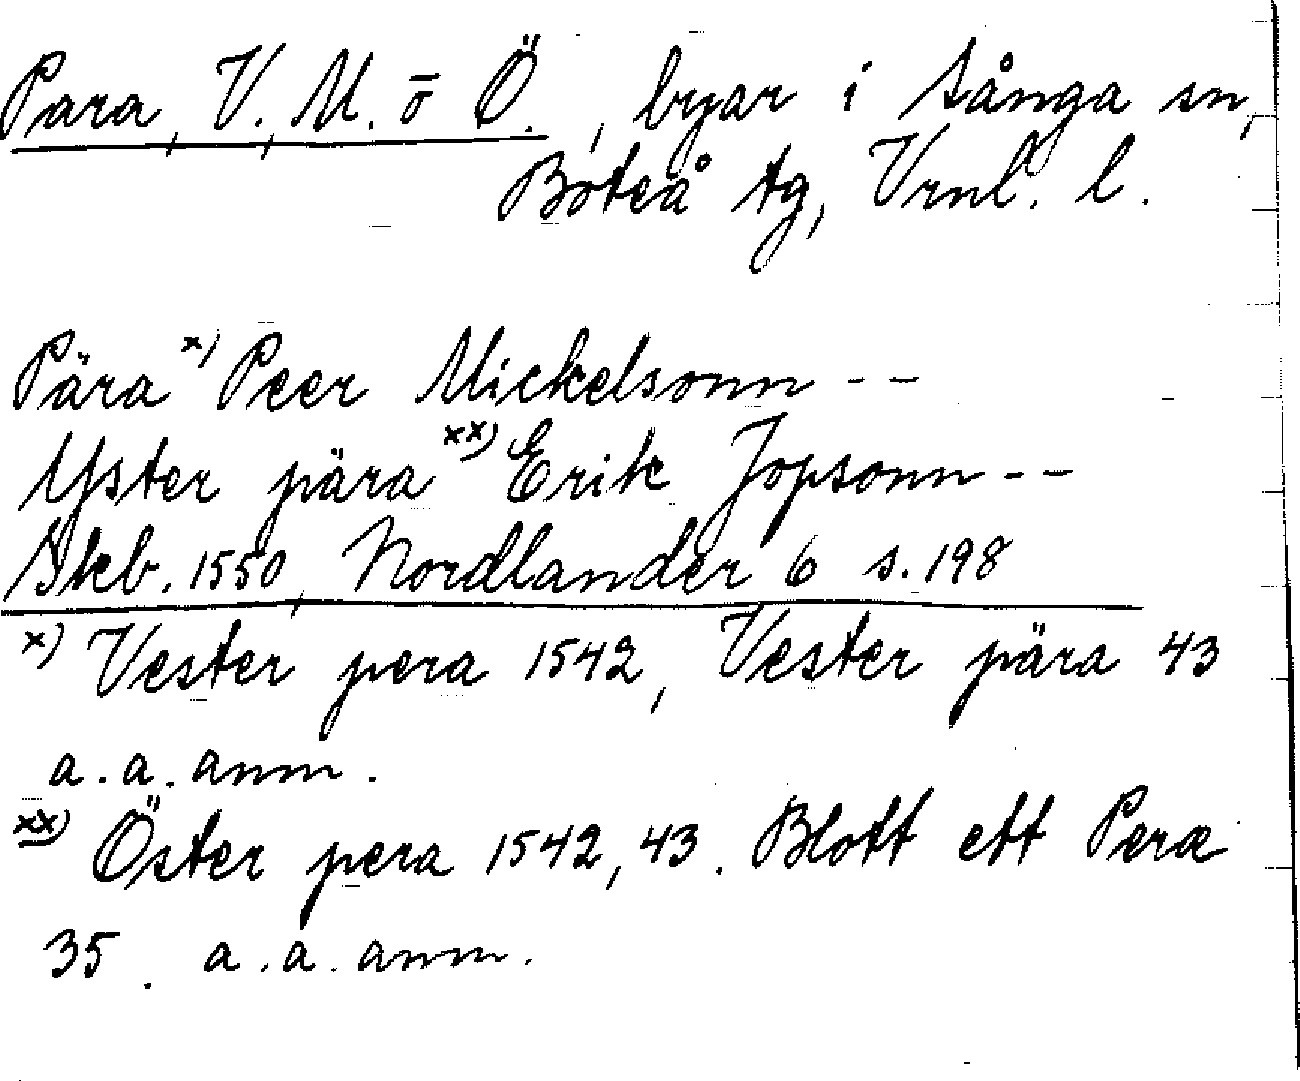 Para, V., M. o Ö., byar i Sånga sn,
Boteå tg, Vrnl. l.
Pära x) Peer Mickelsonn - -
Yster pära xx) Erik Jopsonn - -
Skb. 1550, Nordlander 6 s. 198
x) Vester pera 1542, Vester pära 43
a. a. anm.
xx) Öster pera 1542, 43. Blott ett Pera
35. a. a. anm.